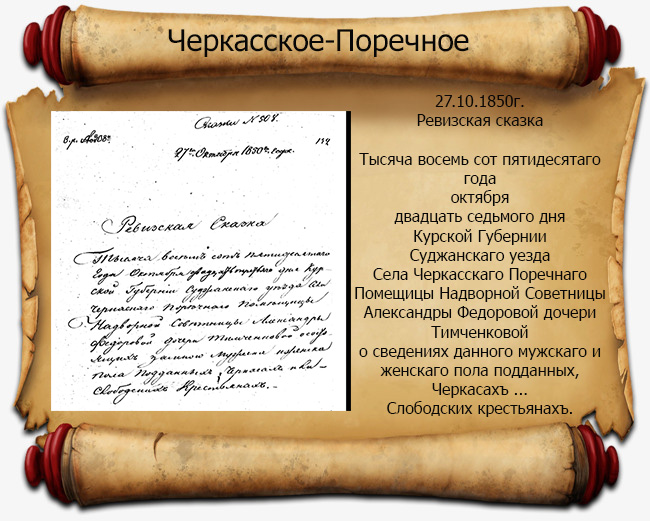 Черкасское-Поречное
Сказка N 508.
27го Октября 1850го года.
132
Ревизская Сказка
Тысяча восемь сотъ пятидесятаго
Года Октября двадцать седьмаго дня Кур-
ской Губернии Суджанскаго уезда Села
Черкаскаго Поречнаго Помещицы
Надворной Советницы Александры
Федоровой дочери Тимченковой о
мужеска и женска
пола Подданныхъ Черкасахъ
Слободскихъ Крестьянахъ.
27.10.1850г.
Ревизская сказка
Тысяча восемь сот пятидесятаго
года
октября
двадцать седьмого дня
Курской Губернии
Суджанскаго уезда
Села Черкасскаго Поречнаго
Помещицы Надворной Советницы
Александры Федоровой дочери
Тимченковой
о сведениях данного мужскаго и
женскаго пола подданных,
Черкасахъ ...
Слободских крестьянахъ.